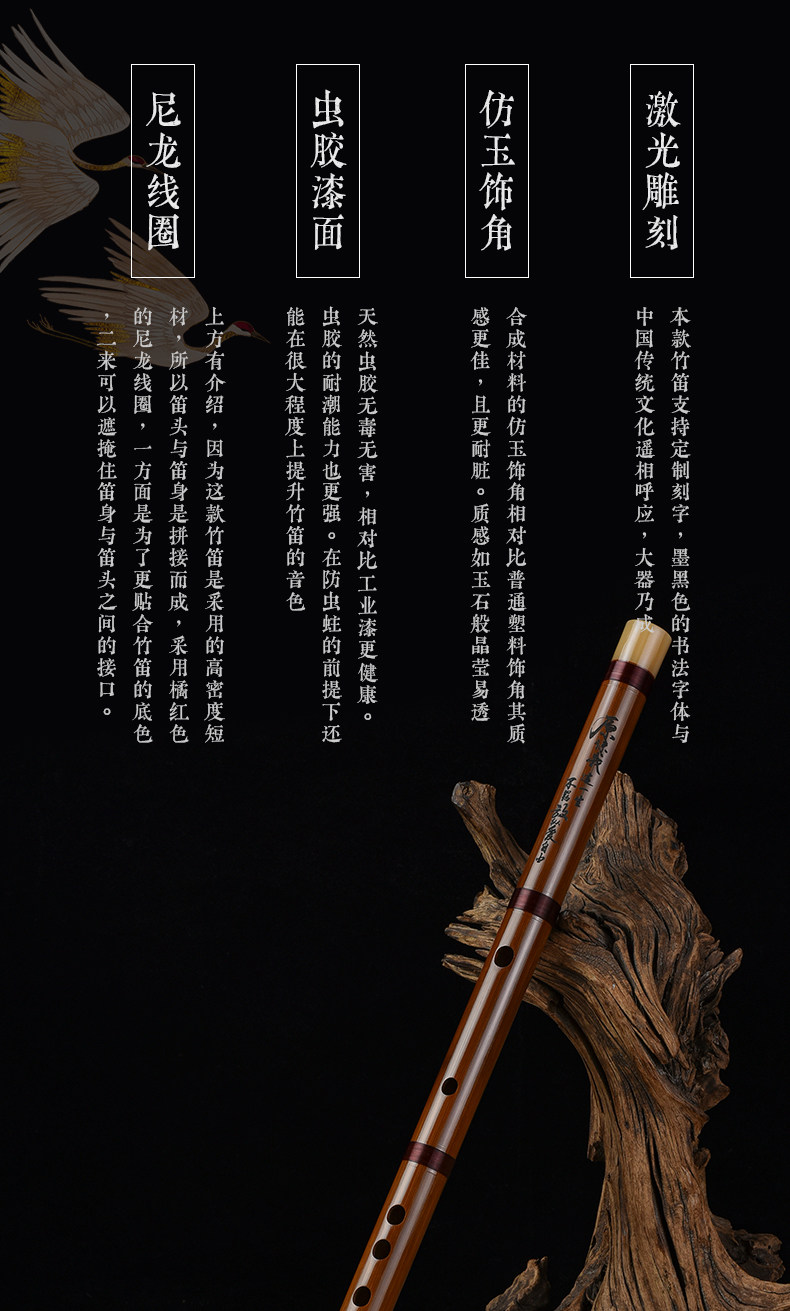 激光雕刻
本款竹笛支持定制刻字，墨黑色的书法字体与
中国传统文化遥相呼应，大器乃成
仿玉饰角
合成材料的仿玉饰角相对比普通塑料饰角其质
感更佳，且更耐脏。质感如玉石般晶莹易透
虫胶漆面
天然虫胶无毒无害，相对比工业漆更健康。
虫胶的耐潮能力也更强。在防虫蛀的前提下还
能在很大程度上提升竹笛的音色
尼龙线圈
上方有介绍，因为这款竹笛是采用的高密度短
材，所以笛头与笛身是拼接而成，采用橘红色
的尼龙线圈，一方面是为了更贴合竹笛的底色
，二来可以遮掩住笛身与笛头之间的接口。